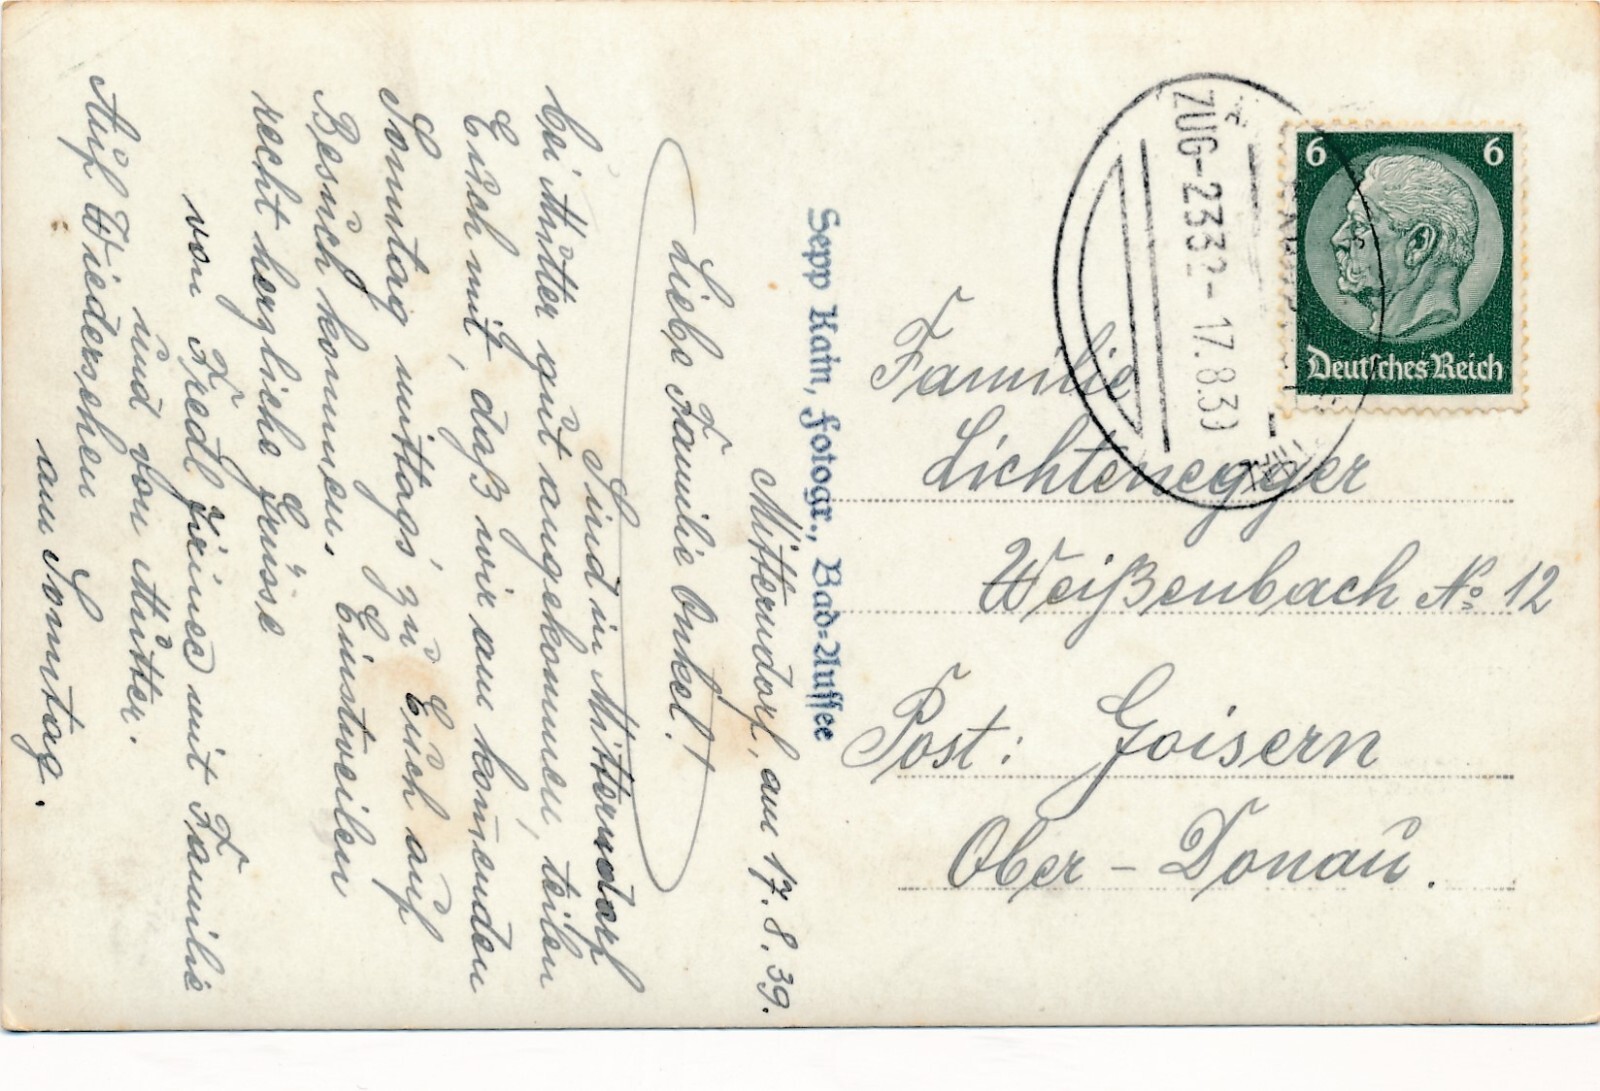 Mitterndorf, am 17. 8. 39.
Liebe Familie Onkel!
Sind in Mitterndorf
bei Mutter gut angekommen, teilen
Euch mit, daß wir am komenden
Sonntag mittags zu Euch auf
Besuch kommen. Einstweilen
recht herzliche Grüsse
von Friedl mit Familie
und von Mutter.
Auf Wiedersehen
am Sonntag.
Sepp Kain, Fotogr., Bad-Aussee
6 6
Deutsches Reich
ZUG-2332- 17.8.39
Familie
Lichtenegger
Weißenbach No 12
Post: Goisern
Ober-Donau.